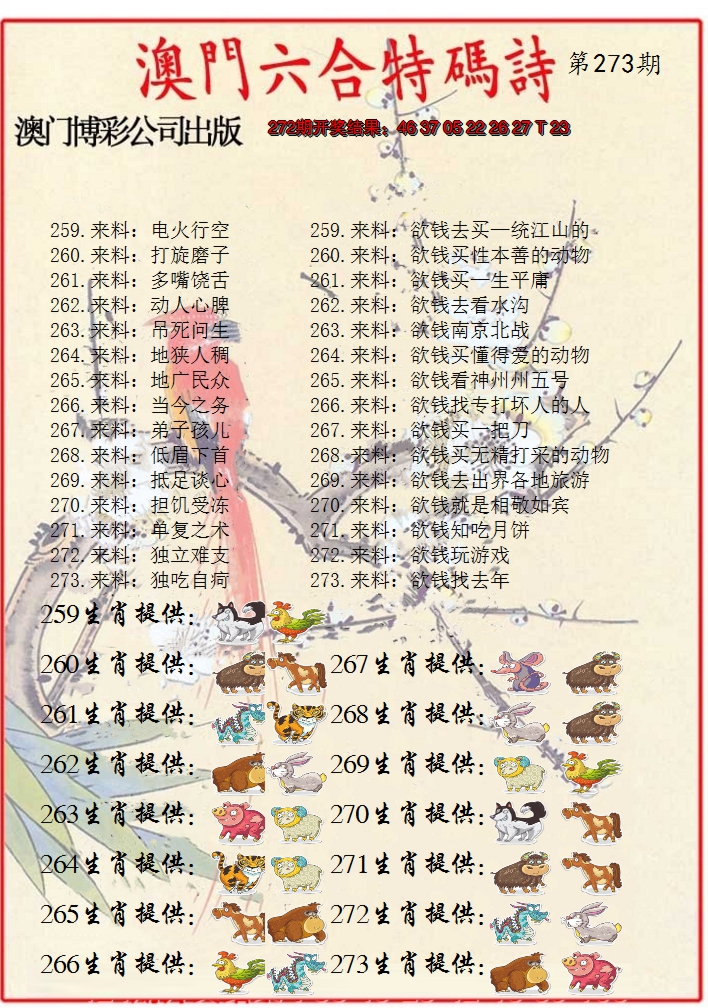 澳門六合特碼詩 第273期
澳门博彩公司出版 272期开奖结果：46 37 05 22 26 27 T 23
259.来料：电火行空 259.来料：欲钱去买一统江山的
260.来料：打旋磨子 260.来料：欲钱买性本善的动物
261.来料：多嘴饶舌 261.来料：欲钱买一生平庸
262.来料：动人心脾 262.来料：欲钱去看水沟
263.来料：吊死问生 263.来料：欲钱南京北战
264.来料：地狭人稠 264.来料：欲钱买懂得爱的动物
265.来料：地广民众 265.来料：欲钱看神州州五号
266.来料：当今之务 266.来料：欲钱找专打坏人的人
267.来料：弟子孩儿 267.来料：欲钱买一把刀
268.来料：低眉下首 268.来料：欲钱买无精打采的动物
269.来料：抵足谈心 269.来料：欲钱去出界各地旅游
270.来料：担饥受冻 270.来料：欲钱就是相敬如宾
271.来料：单复之术 271.来料：欲钱知吃月饼
272.来料：独立难支 272.来料：欲钱玩游戏
273.来料：独吃自疴 273.来料：欲钱找去年
259生肖提供：
260生肖提供： 267生肖提供：
261生肖提供： 268生肖提供：
262生肖提供： 269生肖提供：
263生肖提供： 270生肖提供：
264生肖提供： 271生肖提供：
265生肖提供： 272生肖提供：
266生肖提供： 273生肖提供：